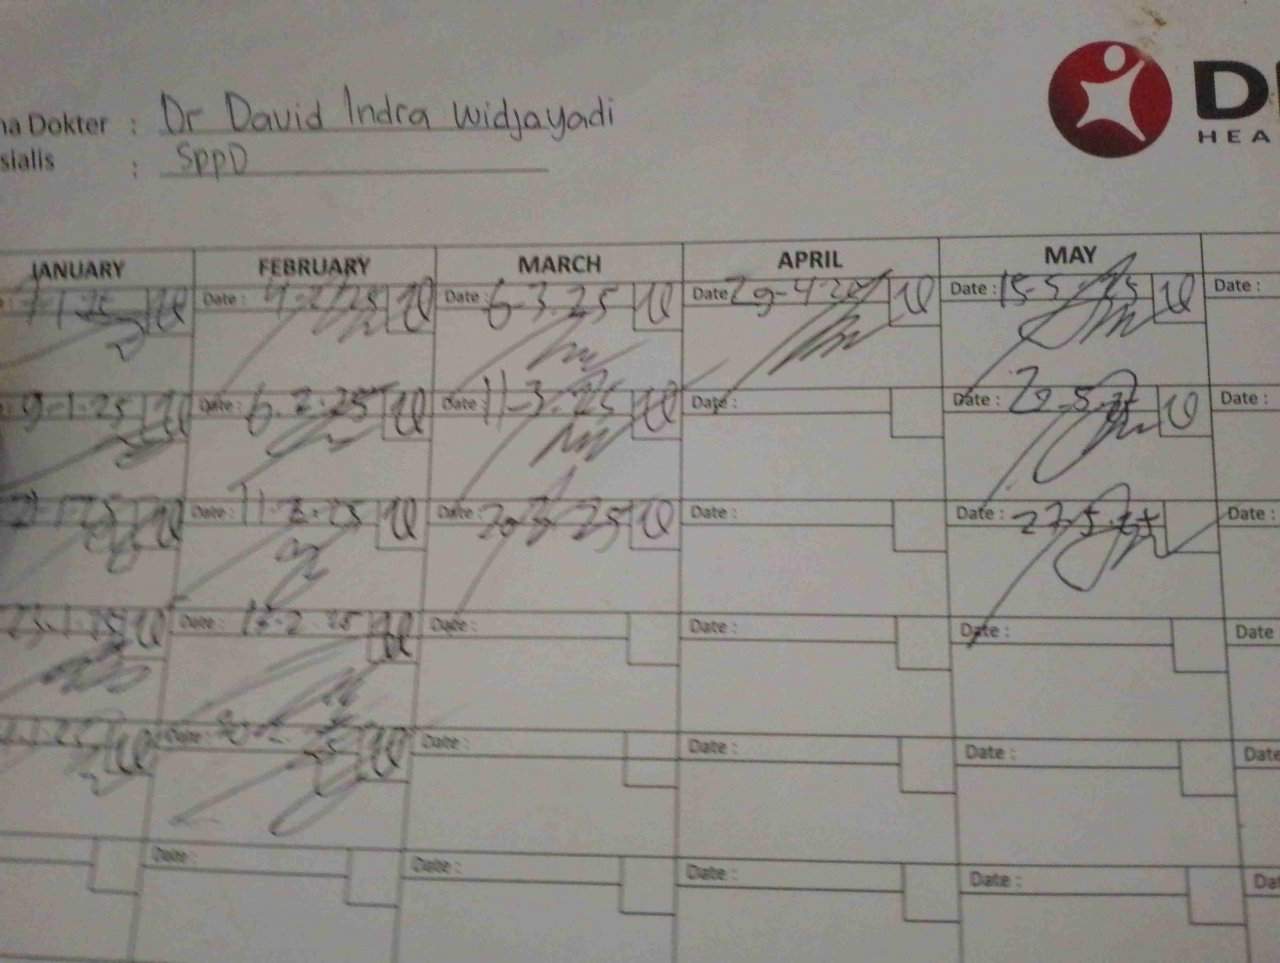 na Dokter : Dr David Indra Widjayadi
sialis : SppD
HEA
JANUARY FEBRUARY MARCH APRIL MAY
7-1-25 Date : 4-2-25 Date : 6-3.25 Date 29-4-25 Date : 15-5-25 Date :
9-1-25 Date : 6.2.25 Date : 11-3.25 Date : Date : 22-5-25 Date :
Date : 11-2-25 Date : 20-3-25 Date : Date : 27-5-25 Date :
23-1-25 Date : 13-2-25 Date : Date : Date : Date
Date : Date : Date : Date : Date
Date : Date : Date : Date : Dat